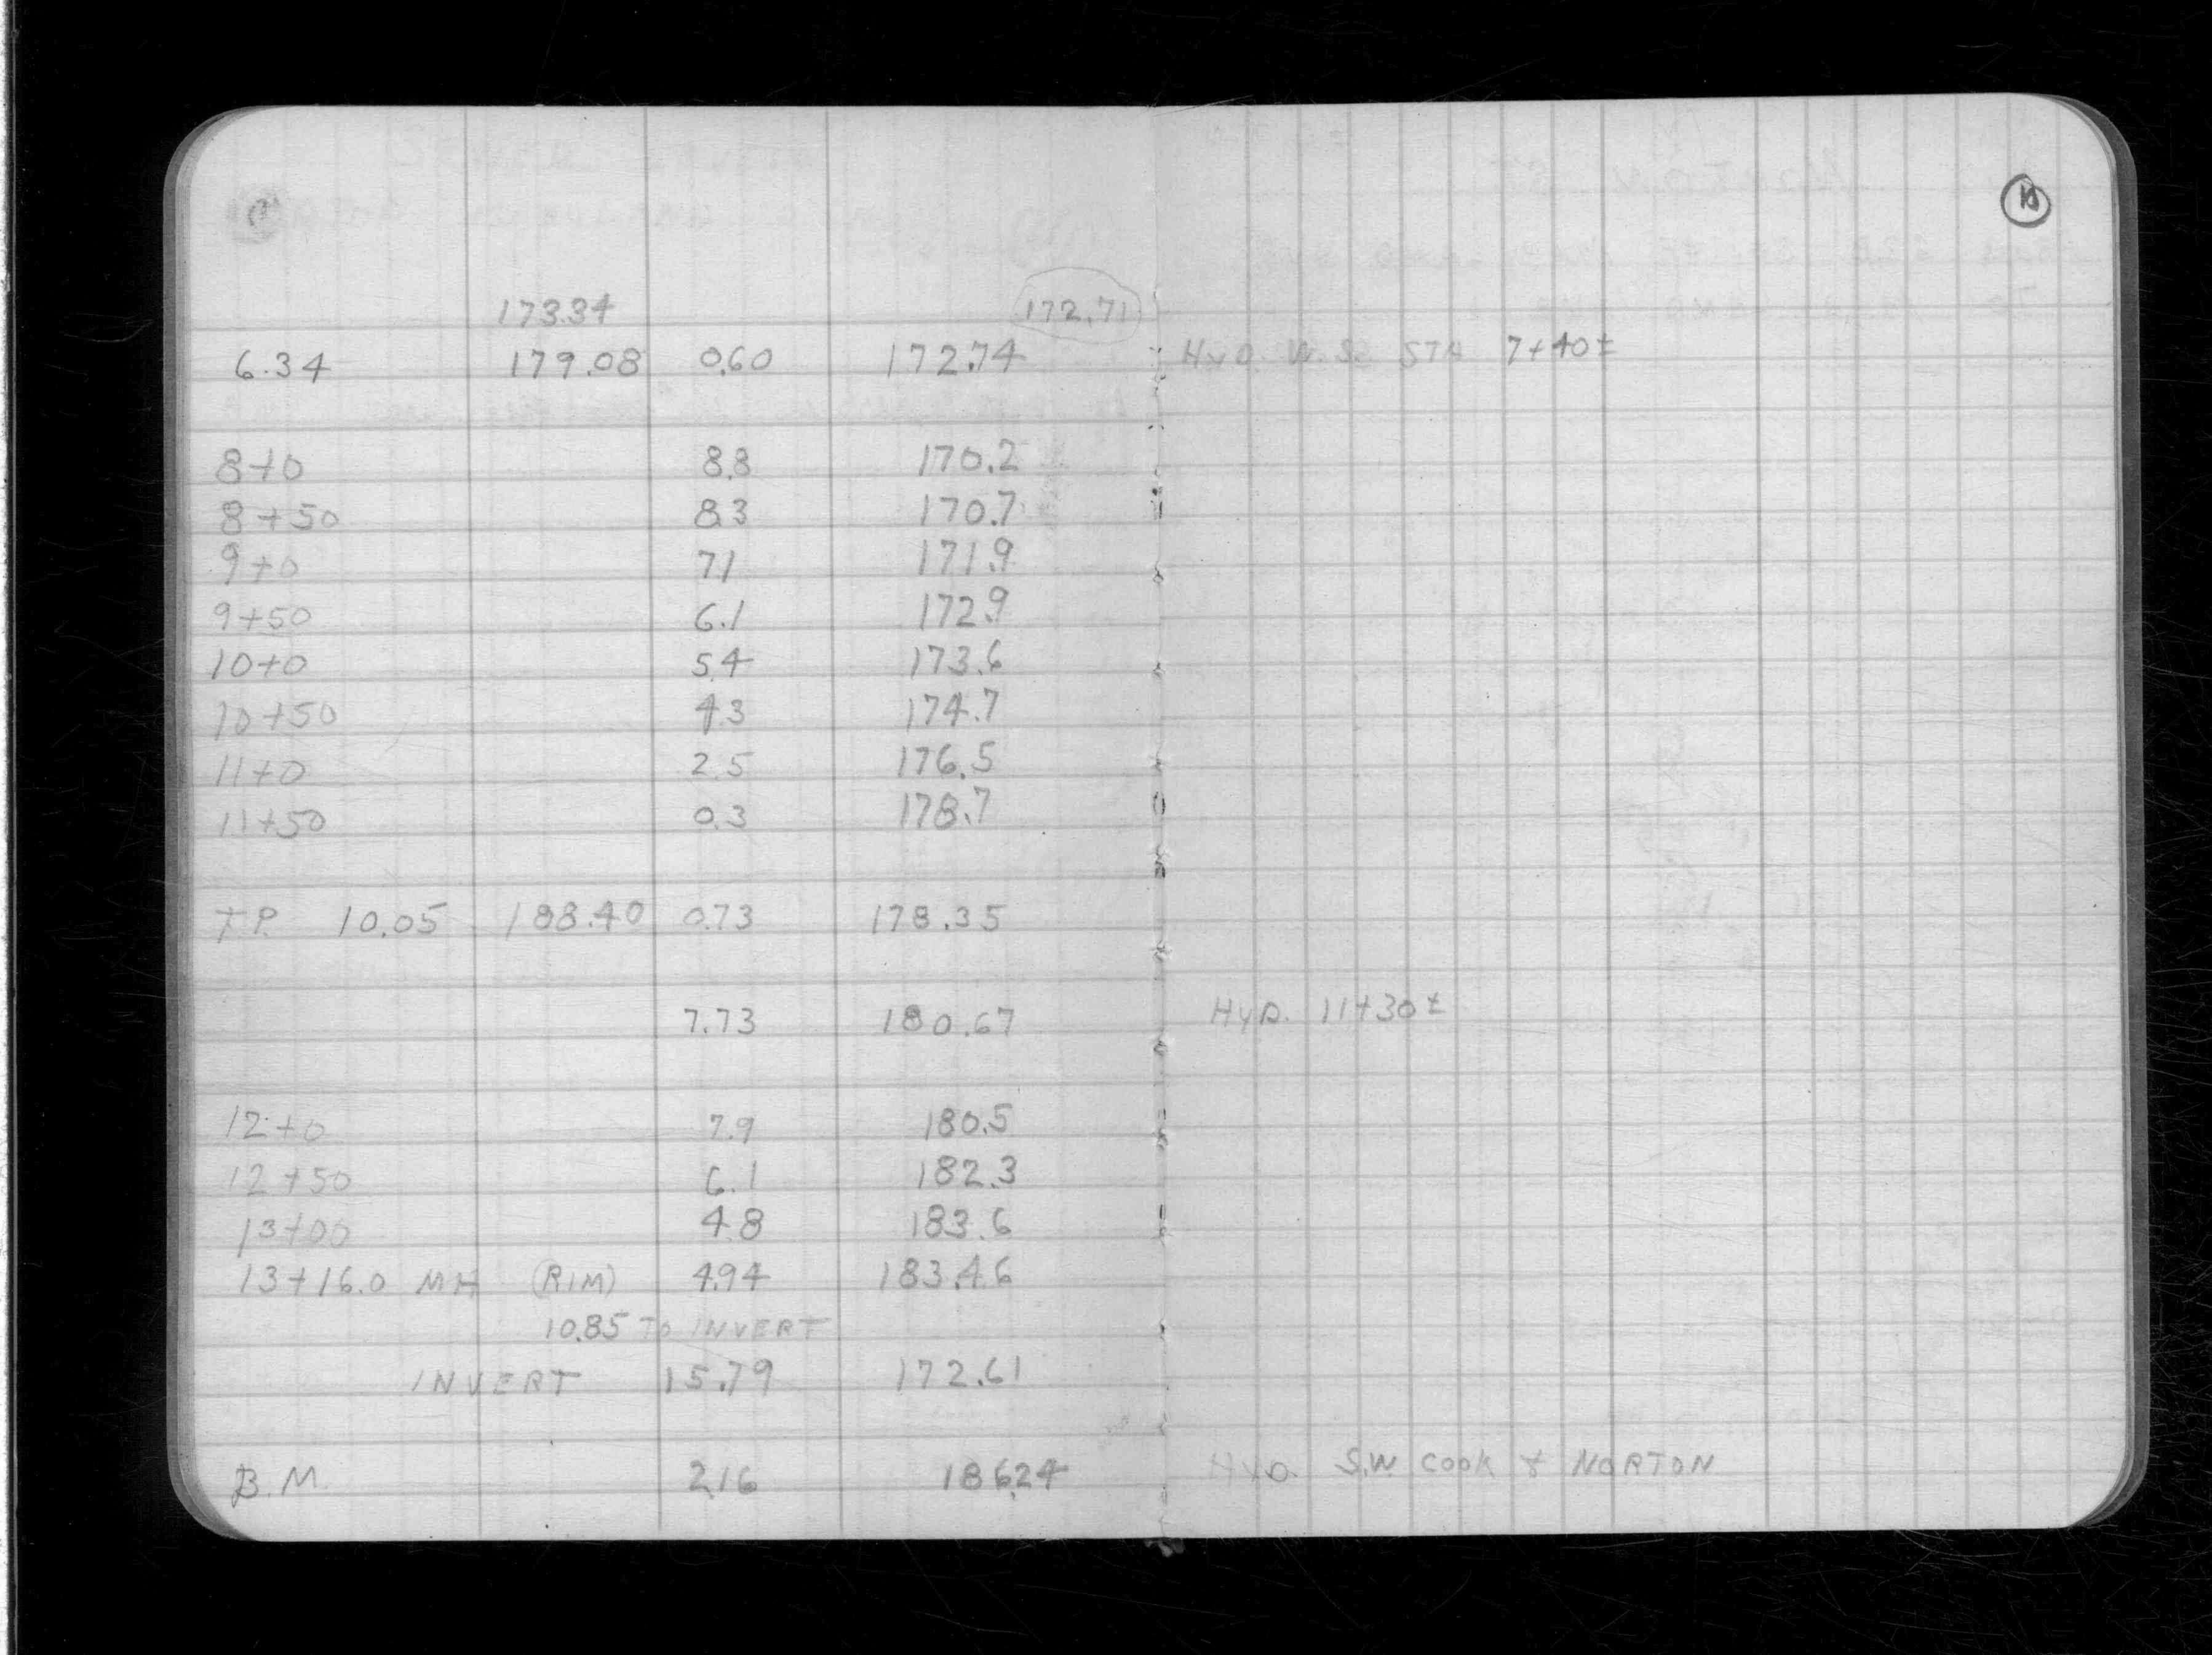 173.34 172.71
6.34 179.08 0.60 172.74 HYD. W.S. STA 7+40±
8+0 8.8 170.2
8+50 8.3 170.7
9+0 7.1 171.9
9+50 6.1 172.9
10+0 5.4 173.6
10+50 4.3 174.7
11+0 2.5 176.5
11+50 0.3 178.7
T.P. 10.05 188.40 0.73 178.35
7.73 180.67 HYD. 11+30±
12+0 7.9 180.5
12+50 6.1 182.3
13+00 4.8 183.6
13+16.0 MH (RIM) 4.94 183.46
10.85 TO INVERT
INVERT 15.79 172.61
B.M. 2.16 186.24 HYD. S.W. COOK & NORTON